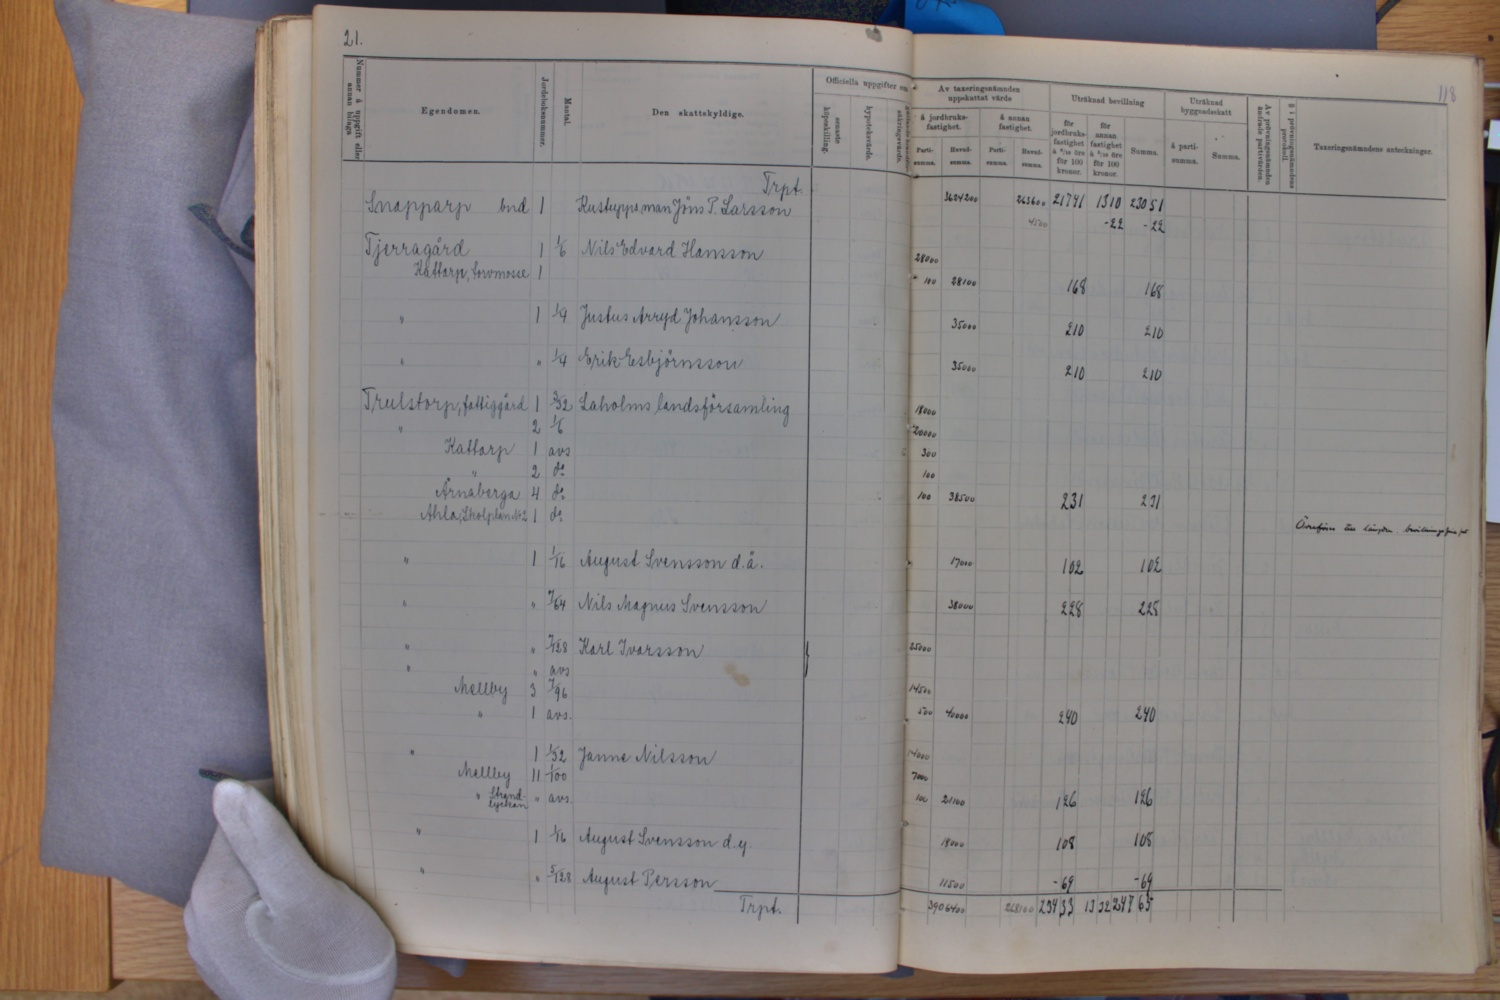 21.
118
Nummer å uppgift eller annan bilaga
Egendomen.
Jordeboksnummer.
Mantal.
Den skattskyldige.
Officiella uppgifter om
senaste köpeskilling.
hypoteksvärde.
Av taxeringsnämnden uppskattat värde
å jordbruksfastighet.
å annan fastighet.
Parti-summa.
Huvud-summa.
Parti-summa.
Huvud-summa.
Uträknad bevillning
för jordbruksfastighet à 6/10 öre för 100 kronor.
för annan fastighet à 5/10 öre för 100 kronor.
Summa.
Uträknad byggnadsskatt
å parti-summa.
Summa.
Av prövningsnämnden ändrade partivärden.
§ i prövningsnämndens protokoll.
Taxeringsnämndens anteckningar.
Trpt. 3624200 263600 21741 1310 23051
Snapparp bnd 1 Kustupps.man Jöns P. Larsson 4500 -22 -22
Tjerragård 1 1/6 Nils Edvard Hansson 28000
Kattarp, torvmosse 1 100 28100 168 168
" 1 1/4 Justus Arryd Johansson 35000 210 210
" " 1/4 Erik Esbjörnsson 35000 210 210
Trulstorp, fattiggård 1 3/32 Laholms landsförsamling 18000
" 2 1/6 20000
Kattarp 1 avs 300
" 2 do 100
Årnaberga 4 do 100 38500 231 231
Ahla, Skolplan No 2 1 do
" 1 1/16 August Svensson d.ä. 17000 102 102
" " 7/64 Nils Magnus Svensson 38000 228 228
" " 7/128 Karl Ivarsson 25000
" " avs
Mellby 3 7/96 14500
" 1 avs. 500 40000 240 240
" 1 1/32 Janne Nilsson 14000
Mellby 11 1/100 7000
" Strandlyckan " avs. 100 21100 126 126
" 1 1/16 August Svensson d.y. 18000 108 108
" " 5/128 August Persson 11500 -69 -69
Trpt. 3906400 268100 23433 1332 24765